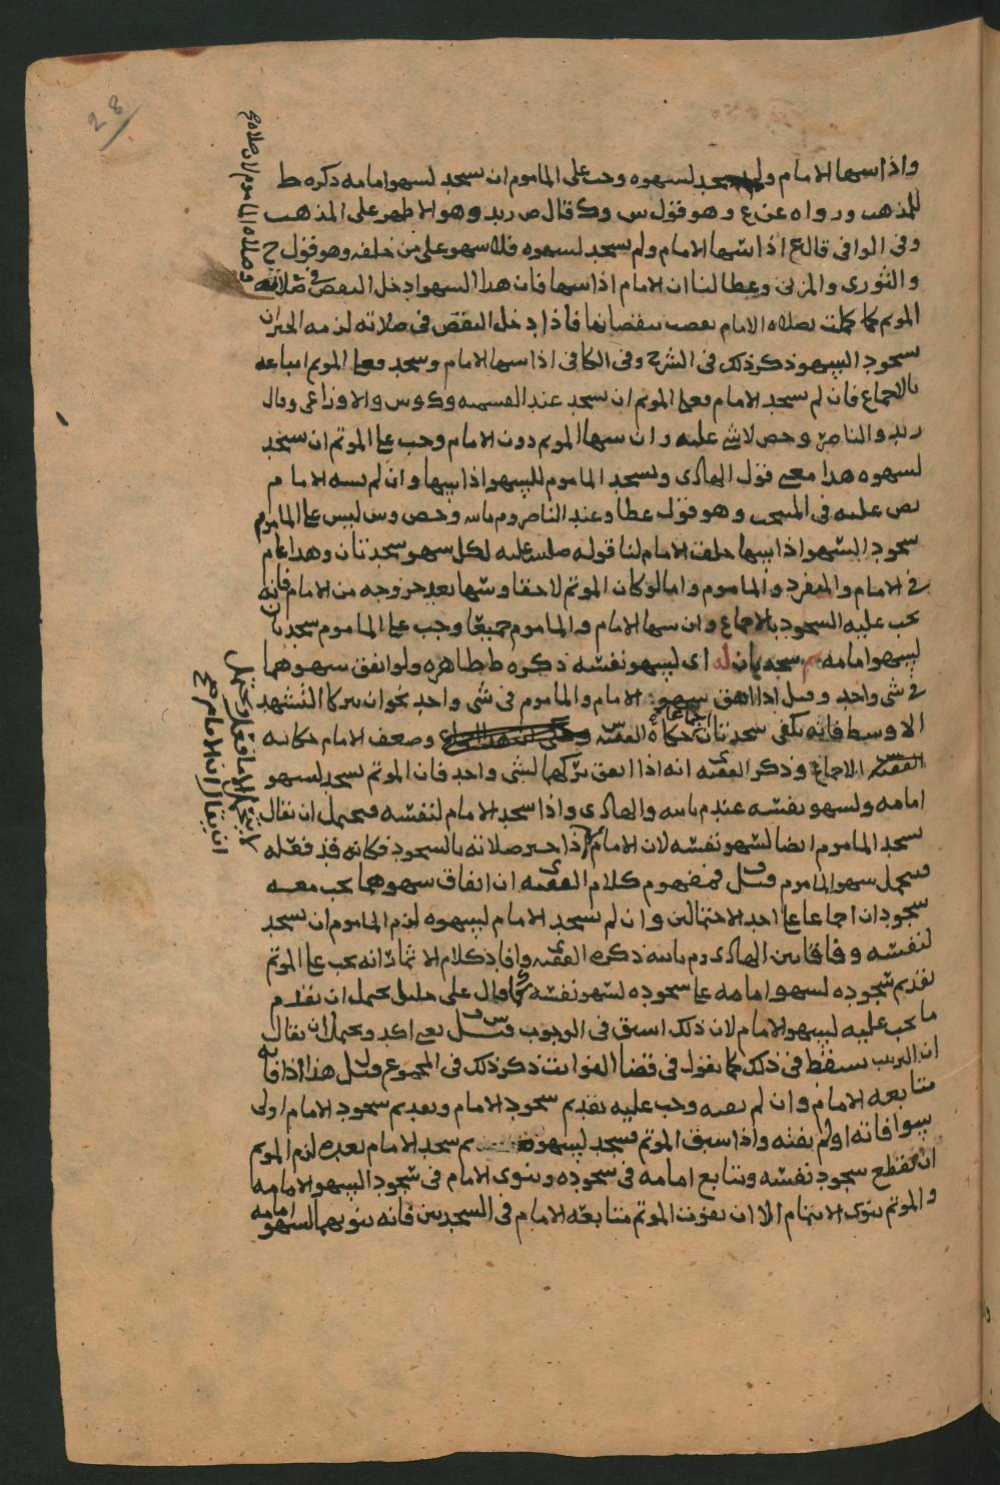 واذا سها الامام ولم يسجد لسهوه وجب على الماموم ان يسجد لسهو امامه ذكره ط
للمذهب ورواه عن ع وهو قول س وك قال ص زيد وهو الاظهر على المذهب
وفي الوافي قال ع اذا سها الامام ولم يسجد لسهوه فلا سهو على من خلفه وهو قول ح
والثوري والمزني وعطا لنا ان الامام اذا سها فان هذا السهو ادخل النقص في صلاة
الموتم كما كملت بصلاه الامام نقصت بنقصانها فاذا دخل النقص في صلاته لزمه الجبران
بسجود السهو ذكر ذلك في الشرح وفي الكافي اذا سها الامام وسجد فعلى الموتم اتباعه
بالاجماع فان لم يسجد الامام فعلى الموتم ان يسجد عند القسميه وك وس والاوزاعي وقال
زيد والناصر وحص لا شي عليه وان سها الموتم دون الامام وجب على الموتم ان يسجد
لسهوه هذا معنى قول الهادي ويسجد الماموم للسهو اذا سها وان لم يسه الامام
نص عليه في المنتخب وهو قول عطا وعند الناصر وم بالله وحص وس ليس على الماموم
سجود السهو اذا سها خلف الامام لنا قوله صلى عليه لكل سهو سجدتان وهذا عام
في الامام والمنفرد والماموم واما لو كان الموتم لاحقا وسها بعد خروجه من الامام فانه
يجب عليه السجود بالاجماع وان سها الامام والماموم جميعا وجب على الماموم سجدتان
لسهو امامه ثم سجدتان له اي لسهو نفسه ذكره ط ظاهره ولو اتفق سهوهما
في شي واحد وقيل اذا اتفق سهو الامام والماموم في شي واحد نحو ان يتركا التشهد
الاوسط فانه يكفي سجدتان اجماعا حكاه الفقيه س وضعف الامام حكايه
الفقيه س الاجماع وذكر الفقيه ي انه اذا اتفق تركهما لشي واحد فان الموتم يسجد لسهو
امامه ولسهو نفسه عند م بالله والهادي واذا سجد الامام لنفسه فيحتمل ان يقال
يسجد الماموم ايضا لسهو نفسه لان الامام اذا جبر صلاته بالسجود فكانه قد فعله
فيحمل سهو الماموم قيل ف فمفهوم كلام الفقيه ي ان اتفاق سهوهما يجب معه
سجودان اجماعا على احد الاحتمالين وان لم يسجد الامام لسهوه لزم الماموم ان يسجد
لنفسه وفاقا بين الهادي وم بالله ذكره الفقيه ي وافاد كلام الائمة انه يجب على الموتم
تقديم سجوده لسهو امامه على سجوده لسهو نفسه كما قال علي خليل يحتمل ان يقدم
ما يجب عليه لسهو الامام لان ذلك اسبق في الوجوب قيل س ف يعني اكد ويحتمل ان يقال
ان الترتيب يسقط في ذلك كما يقول في قضا الفوائت ذكر ذلك في المجموع وقيل ل هذا اذا فاته
متابعه الامام وان لم يفته وجب عليه تقديم سجود الامام وتقديم سجود الامام اولى
سوا فاته او لم يفته واذا سبق الموتم فسجد لسهوه ثم سجد الامام بعده لزم الموتم
ان يقطع سجود نفسه ويتابع امامه في سجوده وينوي الامام في سجود السهو الامامه
والموتم ينوي الائتمام الا ان يفوت الموتم متابعه الامام في السجدتين فانه ينويهما لسهو امامه